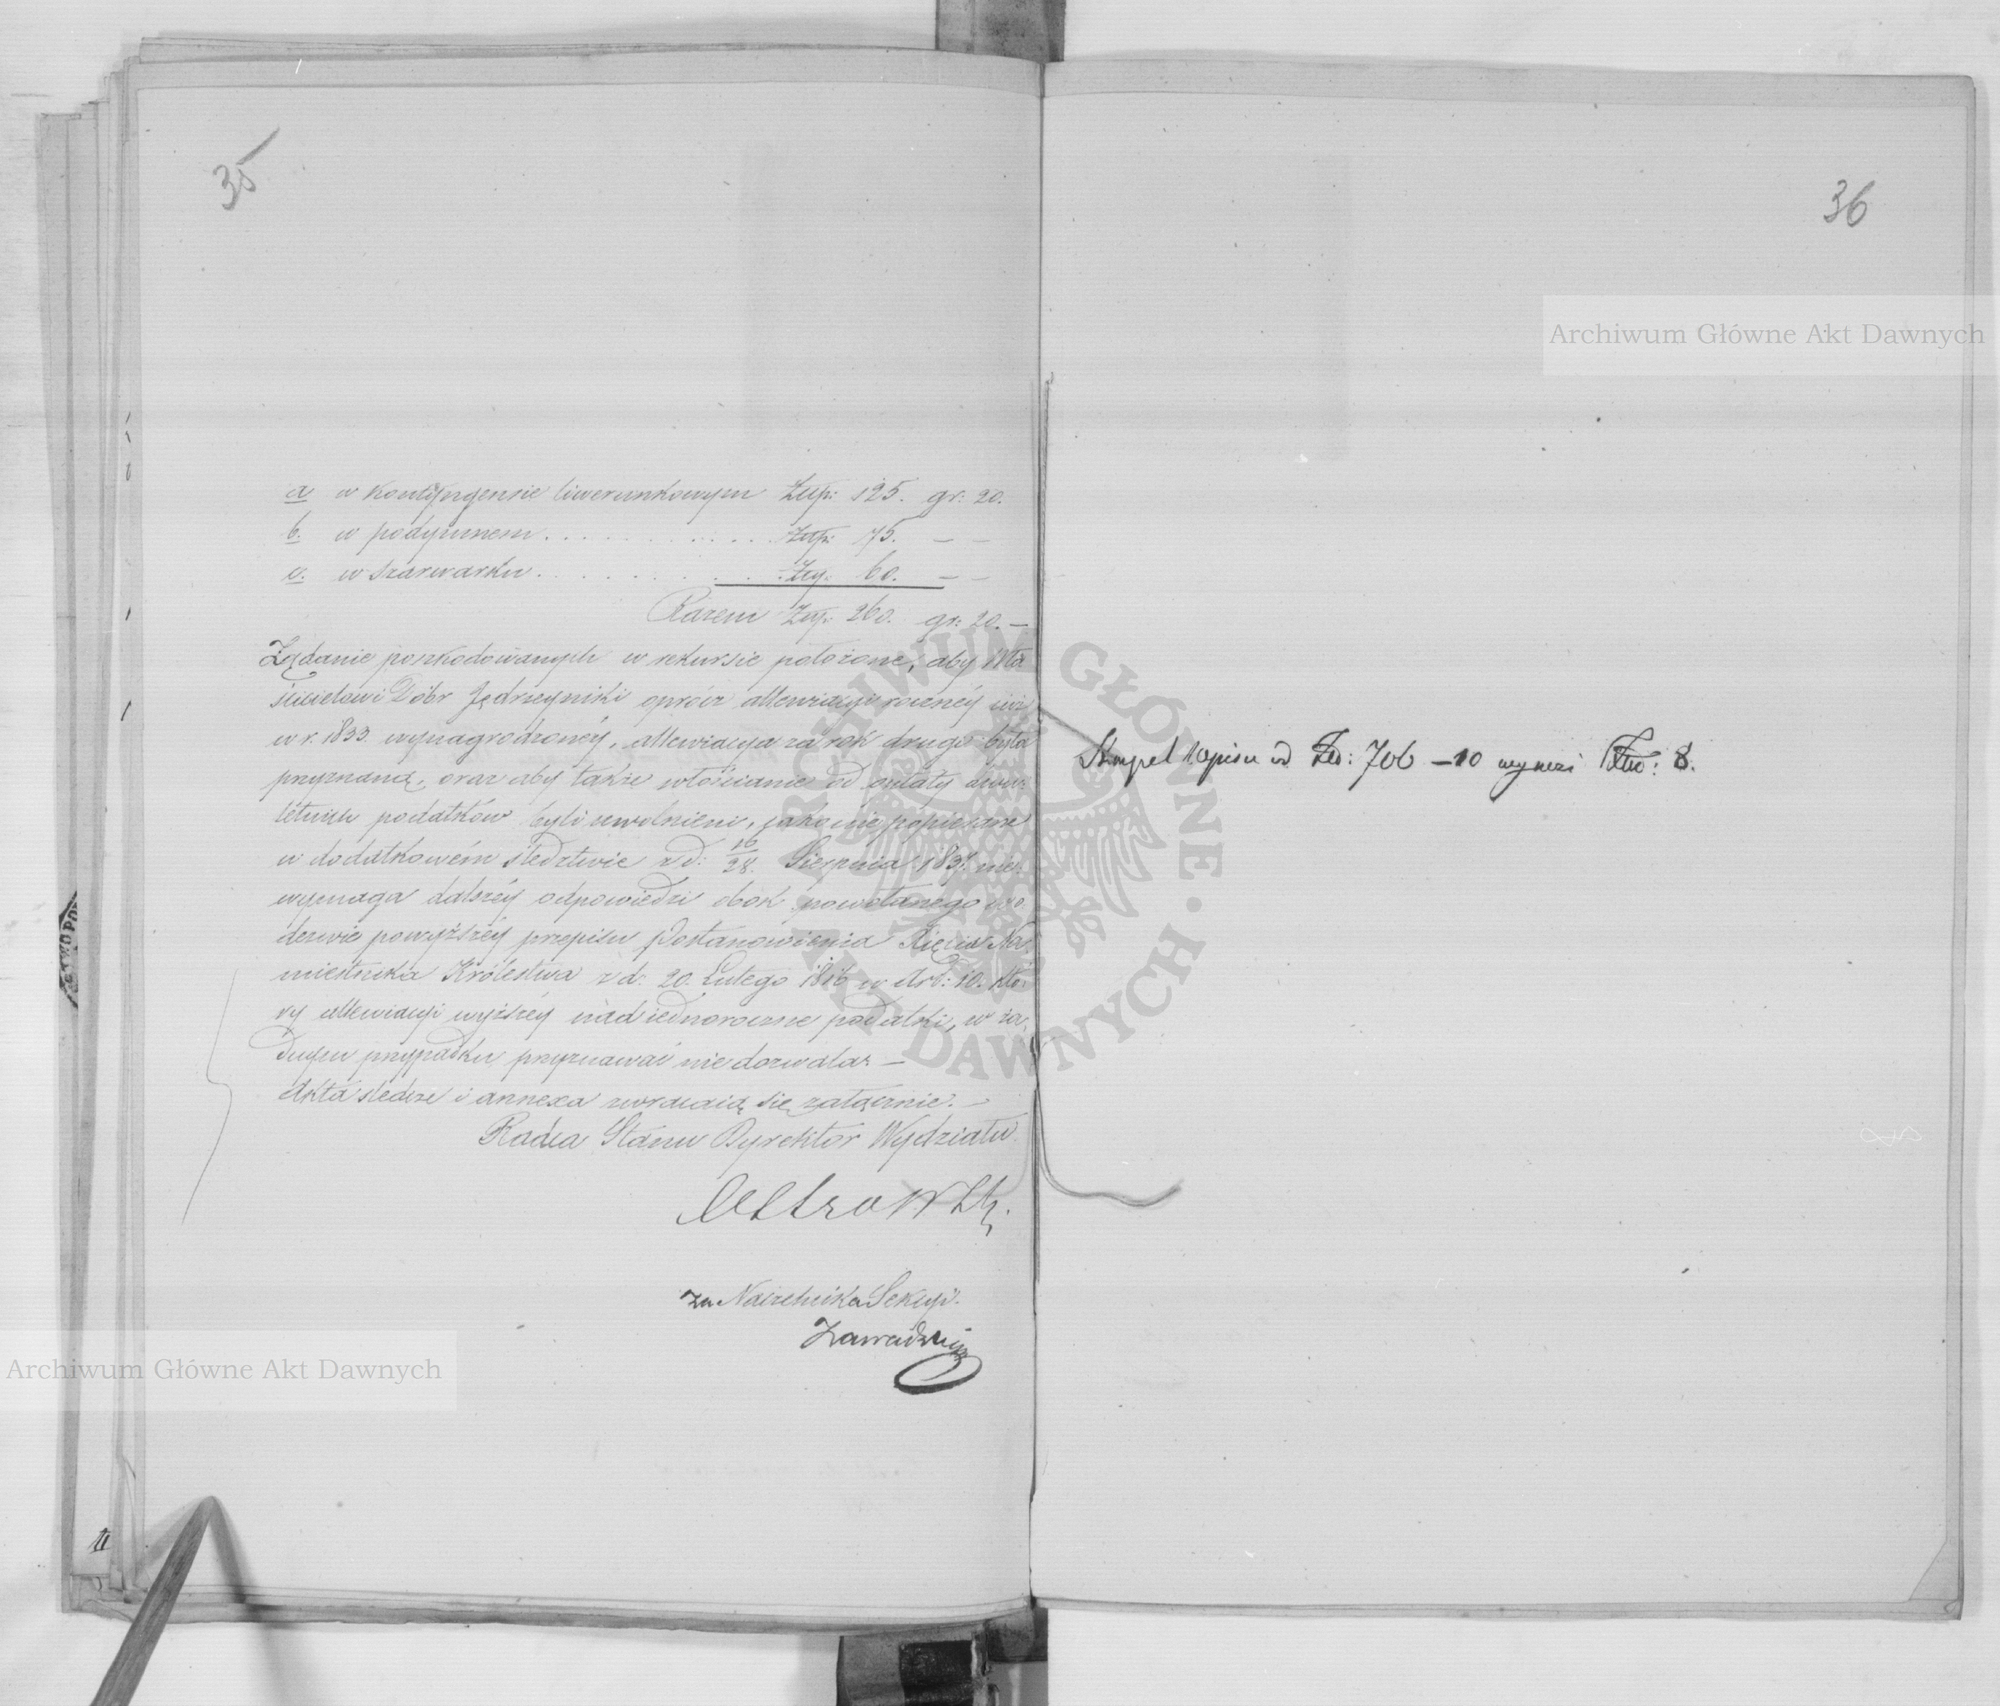 35
a. w kontyngensie liwerunkowym Złp: 125. gr: 20.
b. w podymnem . . . . . . . . . . Złp: 75. — —
c. w szarwarku . . . . . . . . . . Złp. 60. — —
Razem Złp: 260. gr: 20. —
Żądanie poszkodowanych w rekursie położone, aby Wła-
ścicielowi Dóbr Jędrzeyniki oprócz allewiacyi roczney już
w r. 1833. wynagrodzoney, allewiacya za rok drugi była
przyznaną, oraz aby także włościanie od opłaty dwu-
letnich podatków byli uwolnieni, jako nie popierane
w dodatkowém śledztwie z d: 16/28. Sierpnia 1837. nie
wymaga dalszéy odpowiedzi obok powołanego
powyższéy przepisu Postanowienia Xięcia Na-
miestnika Królestwa z d: 20. Lutego 1816 w Art: 10. któ-
ry allewiacyi wyższéy nad jednoroczne podatki, w ża-
dnym przypadku przyznawać nie dozwala. —
Akta śledcze i annexa zwracaią się załącznie. —
Radca Stanu Dyrektor Wydziału
za Naczelnika Sekcyi.
Zawadzki
36
Stempel kopiin od Złp: 706 – 10 wynosi Złp: 8.
Archiwum Główne Akt Dawnych
Archiwum Główne Akt Dawnych
ARCHIWUM GŁÓWNE · AKT DAWNYCH ·